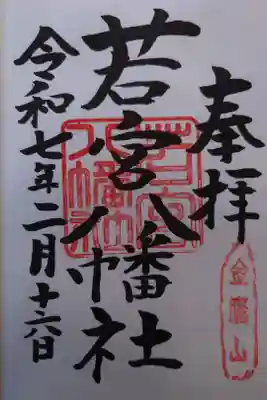 奉拝
金鷹山
若宮八幡社
令和七年二月十六日